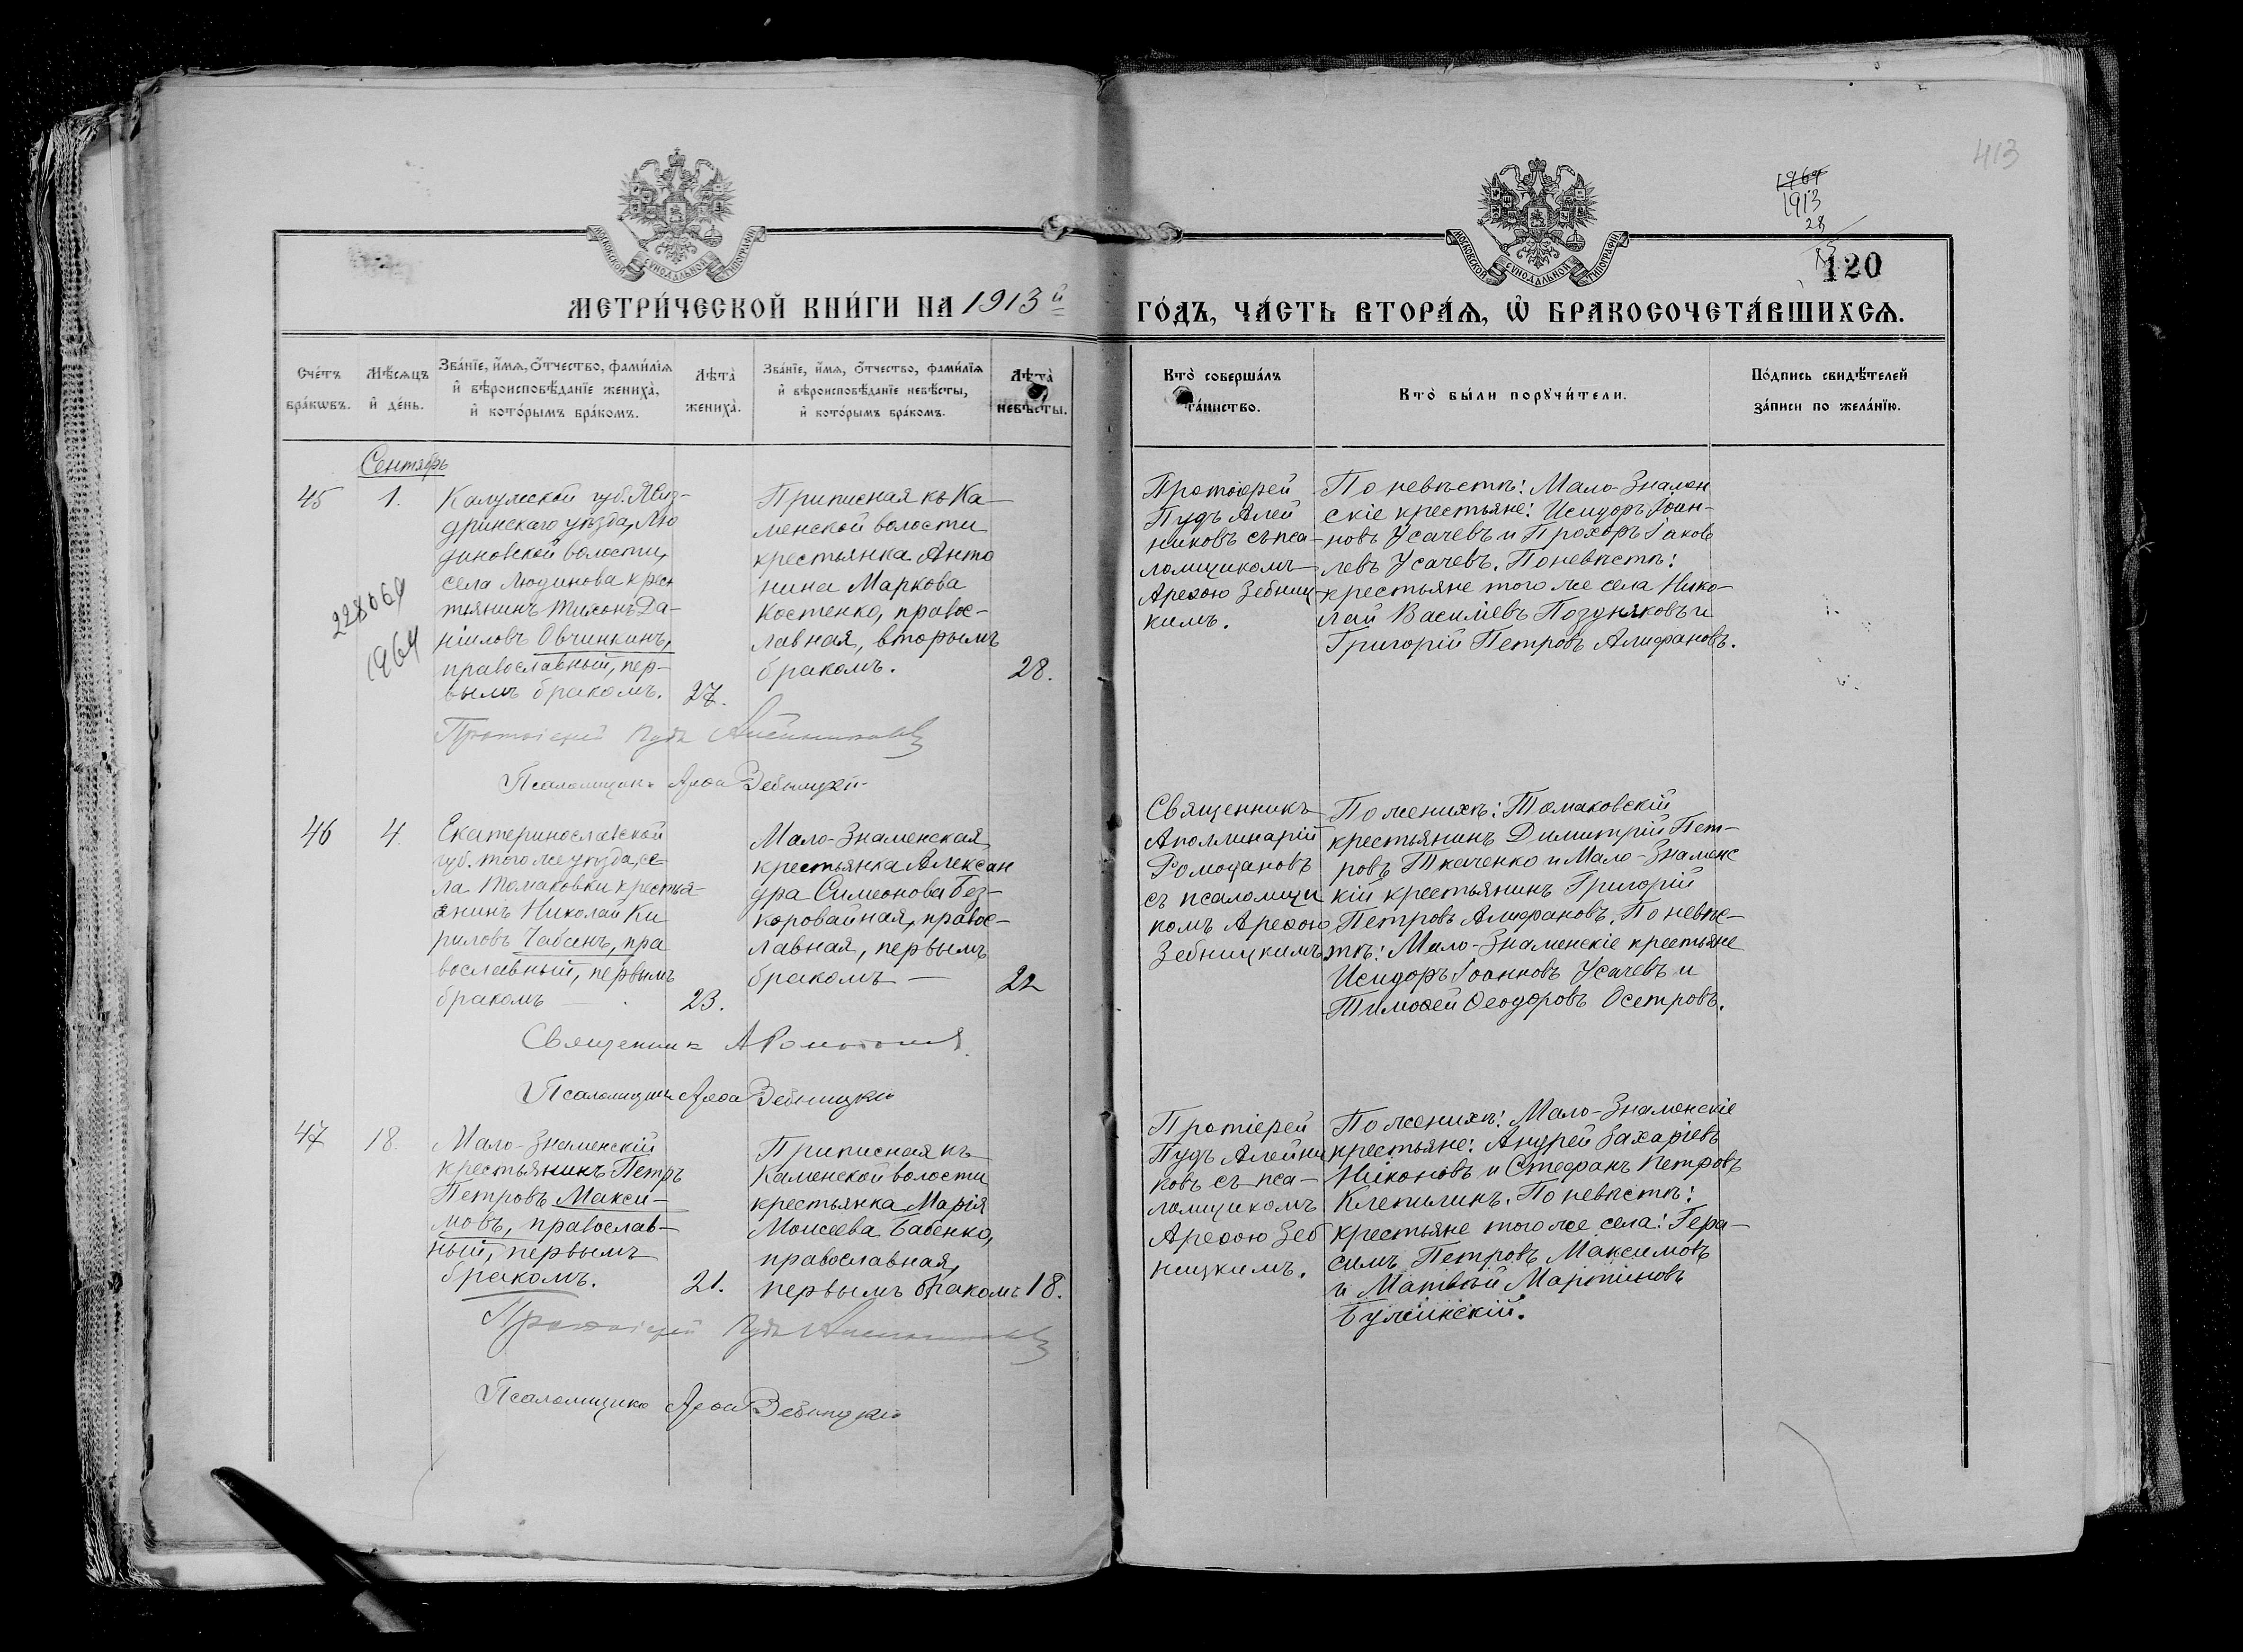 413
1964
1913
28
120
МОСКОВСКОЙ СѴНОДАЛЬНОЙ ТИПОГРАФІИ
МОСКОВСКОЙ СѴНОДАЛЬНОЙ ТИПОГРАФІИ
МЕТРИ́ЧЕСКОЙ КНИ́ГИ НА 1913й
ГО́ДЪ, ЧА́СТЬ ВТОРА́Ѧ, Ѽ БРАКОСОЧЕТА́ВШИХСѦ.
Сче́тъ бра́кѡвъ.
Мѣ́сѧцъ и҆ де́нь.
Зва́нїе, и҆́мѧ, ѻ҆́тчество, фами́лїѧ
и҆ вѣроисповѣ́данїе жениха̀,
и҆ кото́рымъ бра́комъ.
Лѣта̀ жениха̀.
Зва́нїе, и҆́мѧ, ѻ҆́тчество, фами́лїѧ
и҆ вѣроисповѣ́данїе невѣ́сты,
и҆ кото́рымъ бра́комъ.
Лѣта̀ невѣ́сты.
Кто̀ соверша́лъ
та́инство.
Кто̀ бы́ли порꙋчи́тели.
По́дпись свидѣ́телей
за́писи по жела́нїю.
Сентябрь
45
1.
Калужской губ. Жиз-
дринскаго уѣзда, Лю
диновской волости,
села Людинова крес
тьянинъ Тихонъ Да-
ніиловъ Овчинкинъ,
православный, пер-
вымъ бракомъ.
27.
228064
1964
Приписная къ Ка-
менской волости
крестьянка Анто
нина Маркова
Костенко, правос-
лавная, вторымъ
бракомъ.
28.
Протоіерей
Пудъ Алей
никовъ съ пса-
ломщикомъ
Арефою Зебниц-
кимъ.
По невѣстѣ: Мало-Знамен
скіе крестьяне: Исидоръ Іоан-
новъ Усачевъ и Прохоръ Іаков
левъ Усачевъ. По невѣстѣ:
крестьяне того же села Нико-
лай Василіевъ Поздняковъ и
Григорій Петровъ Алифановъ.
Протоіерей Пудъ Алейниковъ
Псаломщикъ Арефа Зебницкій
46
4.
Екатеринославской
губ. того же уѣзда, се
ла Томаковки крестья-
янинъ Николай Ки
риловъ Чабанъ, пра
вославный, первымъ
бракомъ
23.
Мало-Знаменская
крестьянка Алексан
дра Симеонова Без-
коровайная, правос-
лавная, первымъ
бракомъ
22
Священникъ
Аполлинарій
Ромодановъ
съ псаломщи
комъ Арефою
Зебницкимъ.
По женихѣ: Томаковскій
крестьянинъ Димитрій Пет-
ровъ Ткаченко и Мало-Знаменс
кій крестьянинъ Григорій
Петровъ Алифановъ. По невѣс-
тѣ: Мало-Знаменскіе крестьяне
Исидоръ Іоанновъ Усачевъ и
Тимофей Ѳеодоровъ Осетровъ.
Священникъ А
Псаломщикъ Арефа Зебницкій
47
18.
Мало-Знаменскій
крестьянинъ Петръ
Петровъ Макси-
мовъ, православ-
ный, первымъ
бракомъ.
21.
Приписная къ
Каменской волости
крестьянка Марія
Моисеева Бабенко,
православная,
первымъ бракомъ
18.
Протіерей
Пудъ Алейни
ковъ съ пса-
ломщикомъ
Арефою Зеб
ницкимъ.
По женихѣ: Мало-Знаменскіе
крестьяне: Андрей Захаріевъ
Никоновъ и Стефанъ Петровъ
Клепилинъ. По невѣстѣ:
крестьяне того же села: Гера-
симъ Петровъ Максимовъ
и Матвѣй Мартиновъ
Протоіерей Пудъ Алейниковъ
Псаломщикъ Арефа Зебницкій